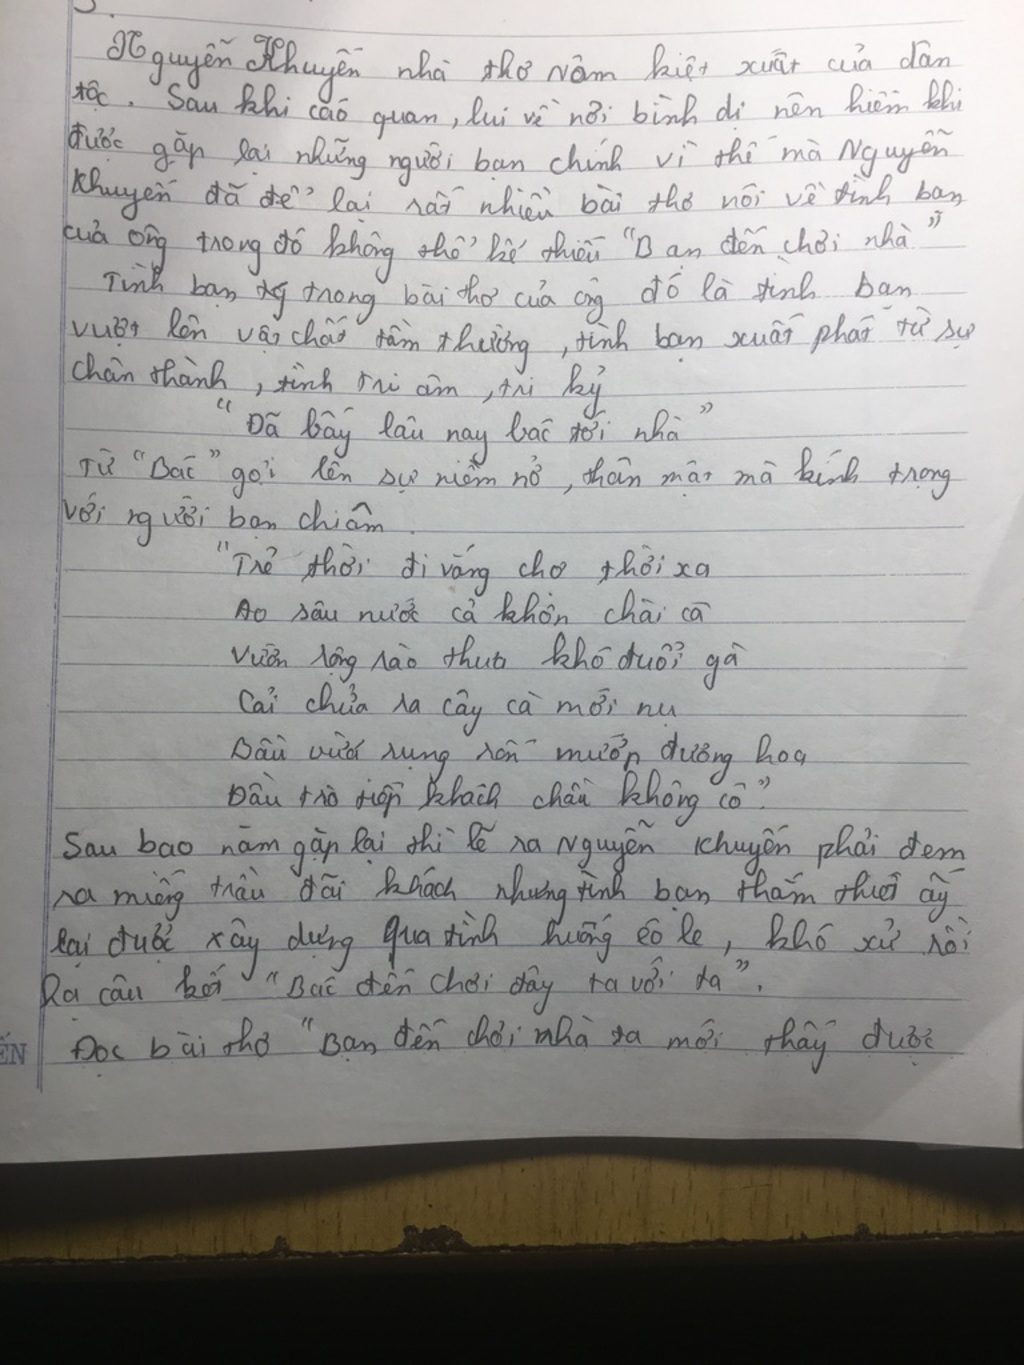 Nguyễn Khuyến nhà thơ Nôm kiệt xuất của dân
tộc. Sau khi cáo quan, lui về nơi bình dị nên hiếm khi
được gặp lại những người bạn chính vì thế mà Nguyễn
Khuyến đã để lại rất nhiều bài thơ nói về tình bạn
của ông trong đó không thể kể thiếu "Bạn đến chơi nhà"
Tình bạn trong bài thơ của ông đó là tình bạn
vượt lên vật chất tầm thường, tình bạn xuất phát từ sự
chân thành, tình tri âm, tri kỷ
"Đã bấy lâu nay bác tới nhà"
Từ "Bác" gợi lên sự niềm nở, thân mật mà kính trọng
với người bạn chiâm
"Trẻ thời đi vắng chợ thời xa
Ao sâu nước cả khôn chài cá
Vườn rộng rào thưa khó đuổi gà
Cải chửa ra cây cà mới nụ
Bầu vừa rụng rốn mướp đương hoa
Đầu trò tiếp khách chầu không có"
Sau bao năm gặp lại thì lẽ ra Nguyễn Khuyến phải đem
ra miếng trầu đãi khách nhưng tình bạn thắm thiết ấy
lại được xây dựng qua tình huống éo le, khó xử rồi
Ra câu kết "Bác đến chơi đây ta với ta".
Đọc bài thơ "Bạn đến chơi nhà ta mới thấy được
ẾN